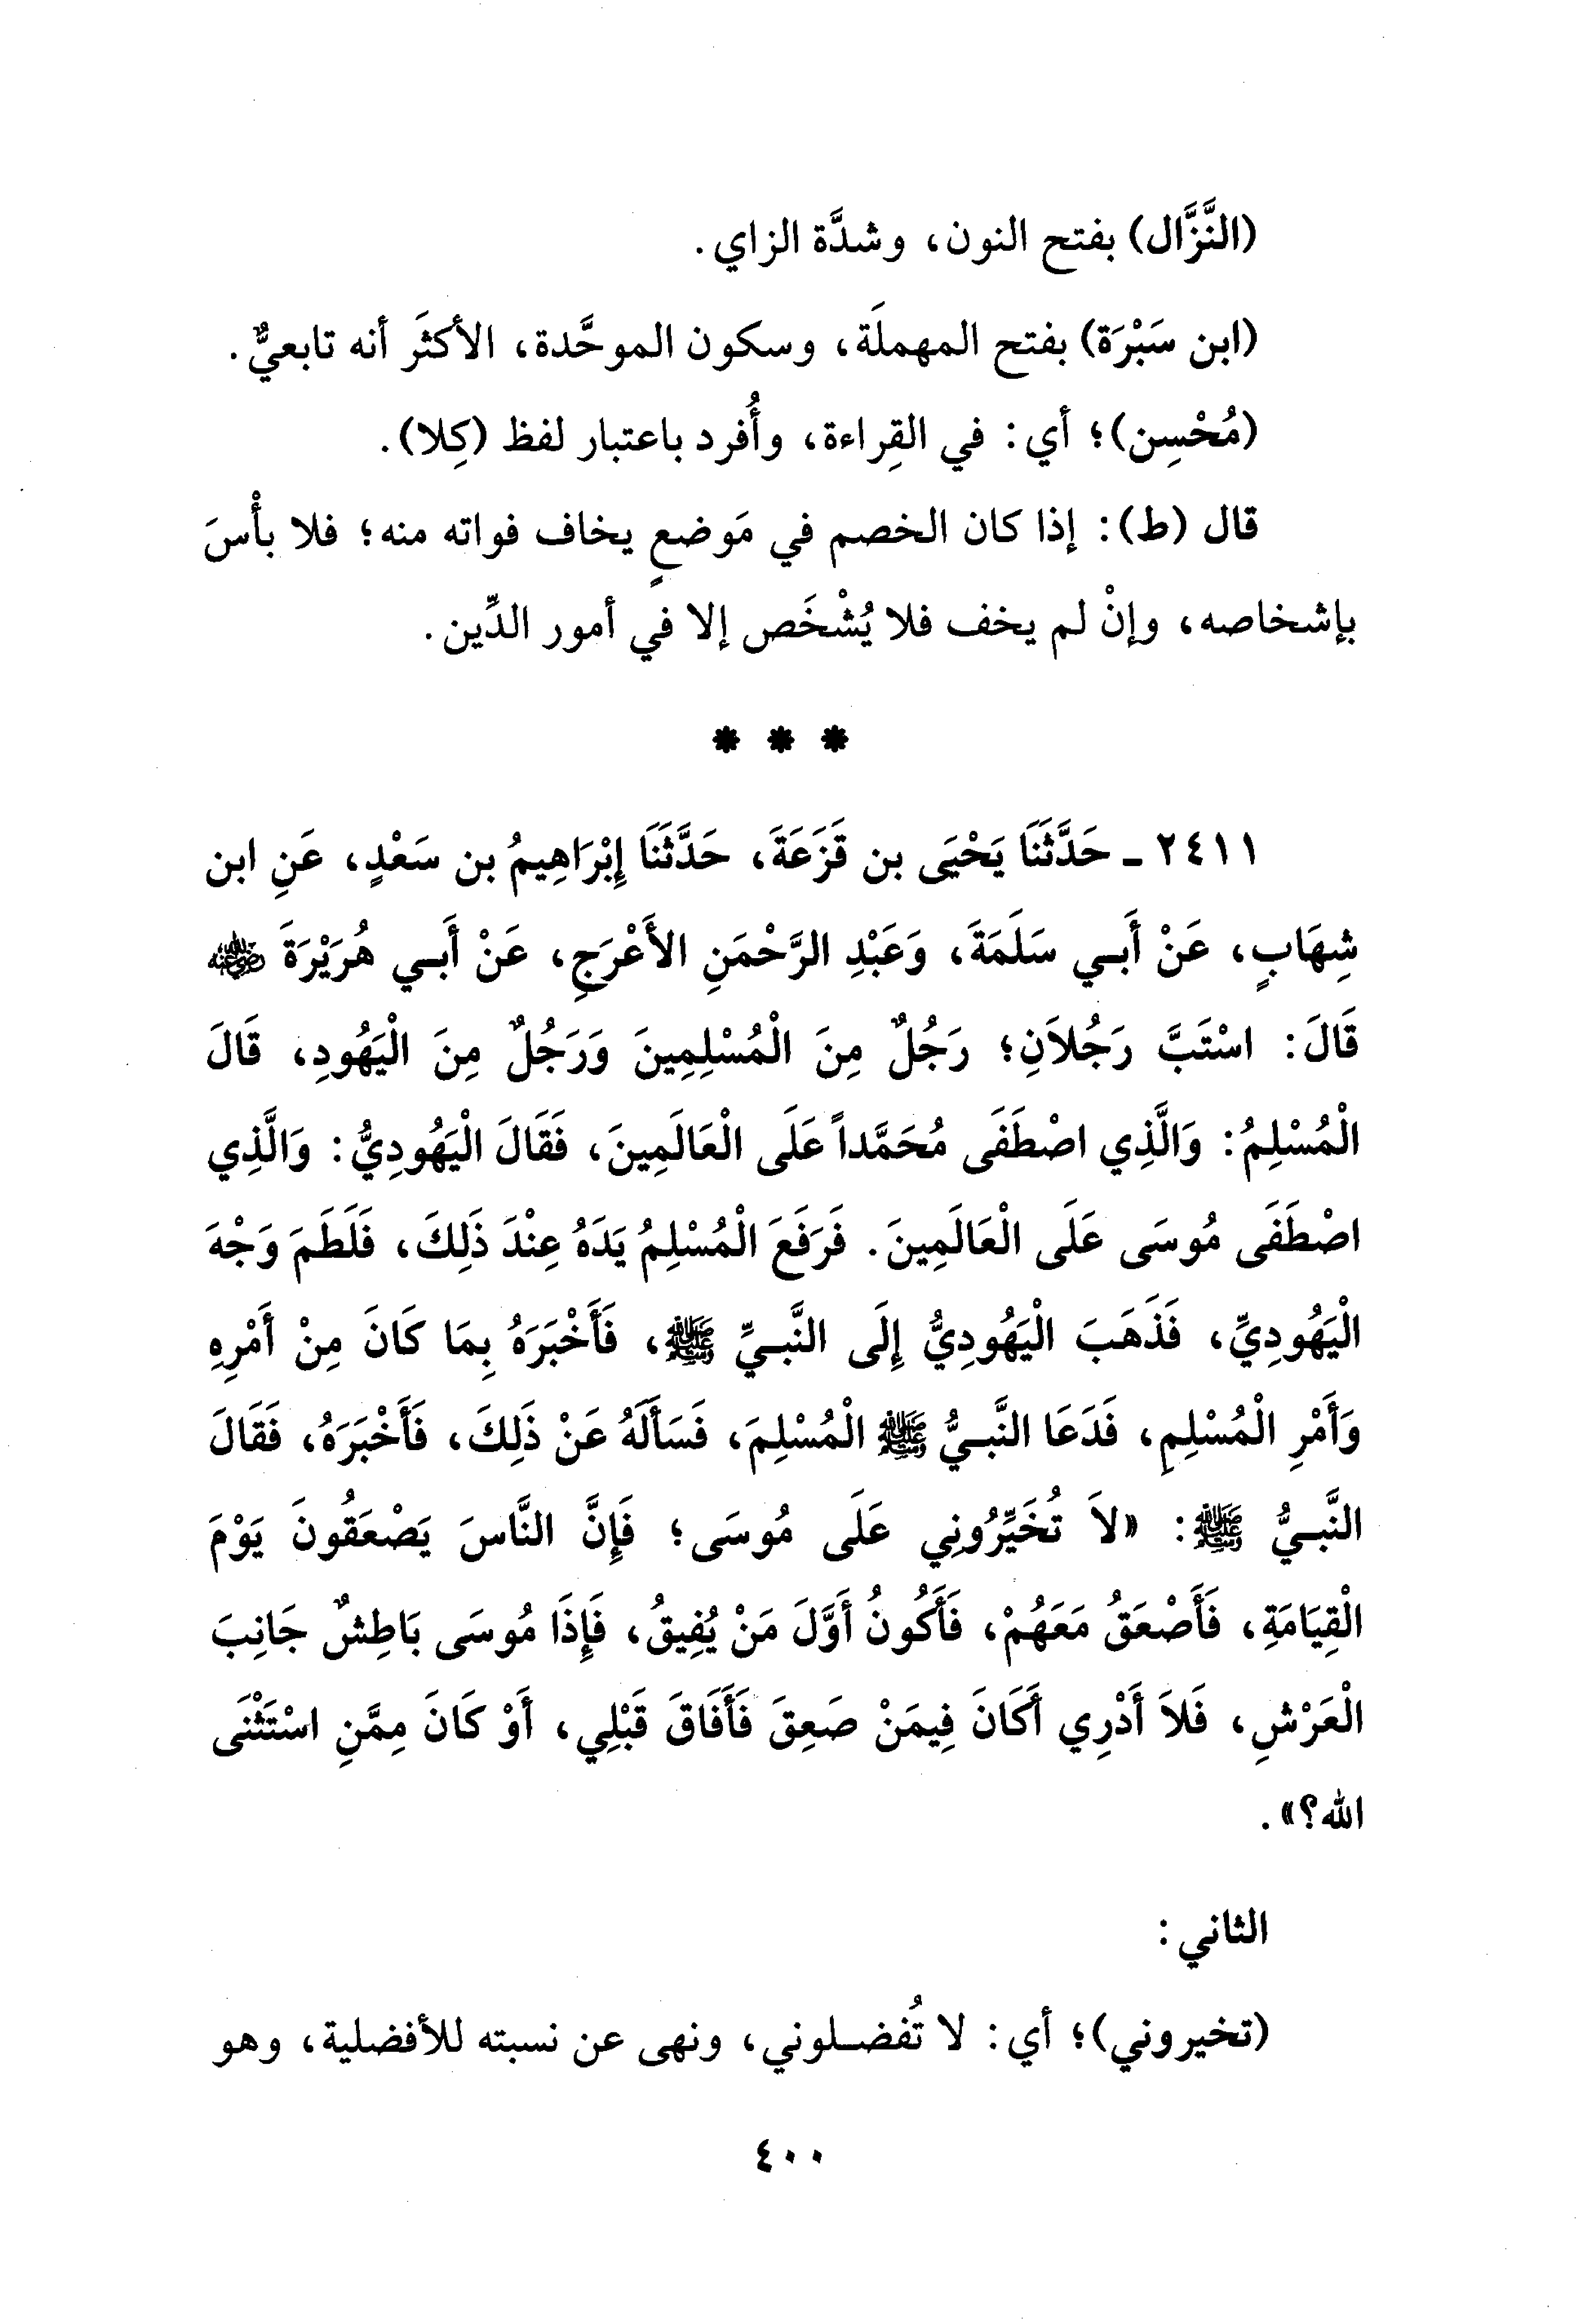 (النَّزَّال) بفتح النون، وشدَّة الزاي.
(ابن سَبْرَة) بفتح المهملَة، وسكون الموحَّدة، الأكثَر أنه تابعيٌّ.
(مُحْسِن)؛ أي: في القِراءة، وأُفرد باعتبار لفظ (كِلا).
قال (ط): إذا كان الخصم في مَوضعٍ يخاف فواته منه؛ فلا بأْسَ
بإشخاصه، وإنْ لم يخف فلا يُشْخَص إلا في أمور الدِّين.
* * *
٢٤١١ - حَدَّثَنَا يَحْيَى بن قَزَعَةَ، حَدَّثَنَا إِبْرَاهِيمُ بن سَعْدٍ، عَنِ ابن
شِهَابٍ، عَنْ أَبي سَلَمَةَ، وَعَبْدِ الرَّحْمَنِ الأَعْرَجِ، عَنْ أَبي هُرَيْرَةَ رضي الله عنه
قَالَ: اسْتَبَّ رَجُلاَنِ؛ رَجُلٌ مِنَ الْمُسْلِمِينَ وَرَجُلٌ مِنَ الْيَهُودِ، قَالَ
الْمُسْلِمُ: وَالَّذِي اصْطَفَى مُحَمَّداً عَلَى الْعَالَمِينَ، فَقَالَ الْيَهُودِيُّ: وَالَّذِي
اصْطَفَى مُوسَى عَلَى الْعَالَمِينَ. فَرَفَعَ الْمُسْلِمُ يَدَهُ عِنْدَ ذَلِكَ، فَلَطَمَ وَجْهَ
الْيَهُودِيِّ، فَذَهَبَ الْيَهُودِيُّ إِلَى النَّبيِّ ﷺ، فَأَخْبَرَهُ بِمَا كَانَ مِنْ أَمْرِهِ
وَأَمْرِ الْمُسْلِمِ، فَدَعَا النَّبيُّ ﷺ الْمُسْلِمَ، فَسَأَلَهُ عَنْ ذَلِكَ، فَأَخْبَرَهُ، فَقَالَ
النَّبيُّ ﷺ: «لاَ تُخَيِّرُونِي عَلَى مُوسَى؛ فَإِنَّ النَّاسَ يَصْعَقُونَ يَوْمَ
الْقِيَامَةِ، فَأَصْعَقُ مَعَهُمْ، فَأَكُونُ أَوَّلَ مَنْ يُفِيقُ، فَإِذَا مُوسَى بَاطِشٌ جَانِبَ
الْعَرْشِ، فَلاَ أَدْرِي أَكَانَ فِيمَنْ صَعِقَ فَأَفَاقَ قَبْلِي، أَوْ كَانَ مِمَّنِ اسْتَثْنَى
الله؟».
الثاني:
(تخيروني)؛ أي: لا تُفضلوني، ونهى عن نسبته للأفضلية، وهو
٤٠٠